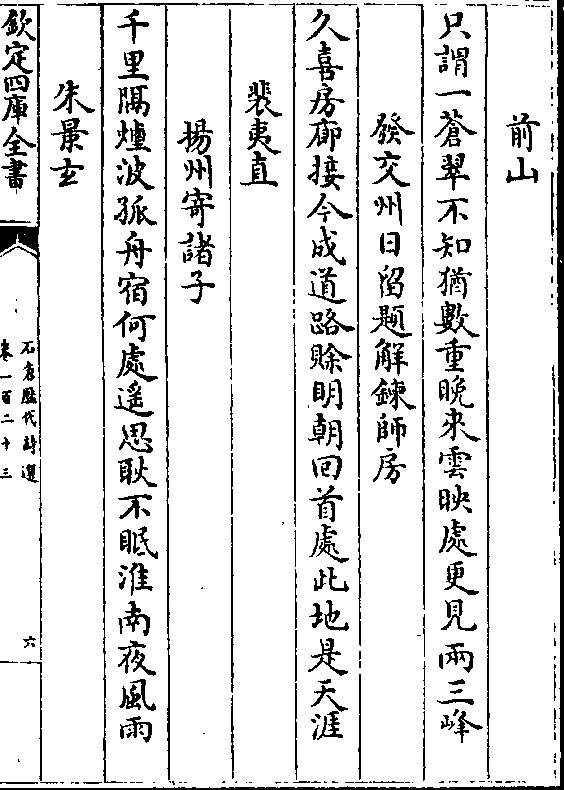 前山
只謂一蒼翠不知猶數重晩來雲映處更見兩三峰
發交州日留題解鍊師房
久喜房廊接今成道路賒明朝回首處此地是天涯
裴夷直
揚州寄諸子
千里隔煙波孤舟宿何處遥思耿不眠淮南夜風雨
朱景玄
欽定四庫全書
石倉歴代詩選
卷一百二十三
六